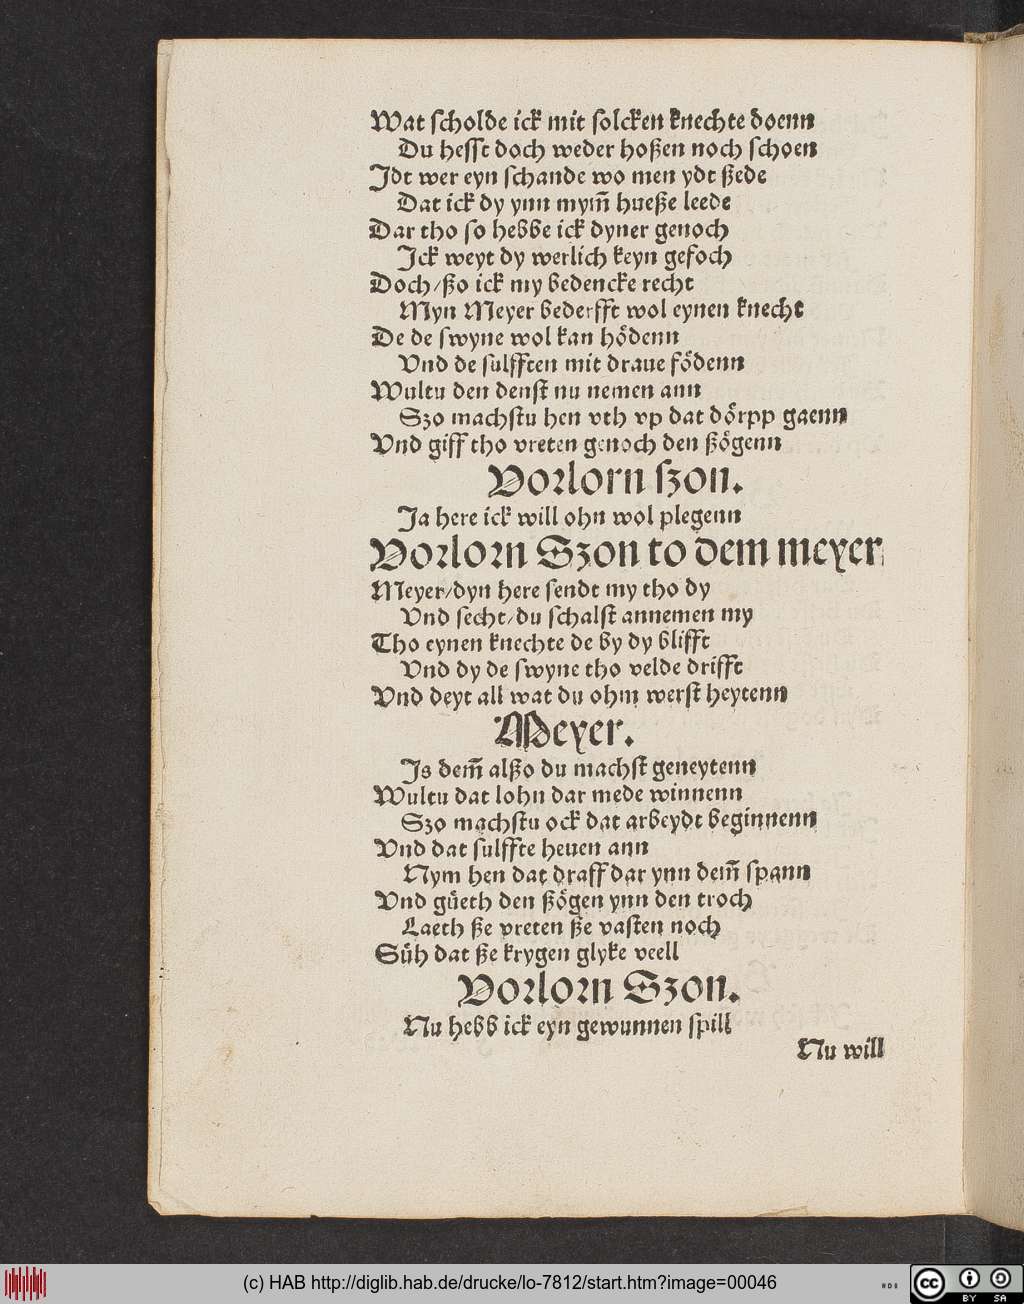 Wat ſcholde ick mit ſolcken knechte doenn
Du heſſt doch weder hoßen noch ſchoen
Jdt wer eyn ſchande wo men ydt ßede
Dat ick dy ynn mym̃ hueße leede
Dar tho ſo hebbe ick dyner genoch
Jck weyt dy werlich keyn gefoch
Doch/ßo ick my bedencke recht
Myn Meyer bederfft wol eynen knecht
De de ſwyne wol kan hödenn
Vnd de ſulfften mit draue födenn
Wultu den denſt nu nemen ann
Szo machſtu hen vth vp dat dörpp gaenn
Vnd giff tho vreten genoch den ßögenn
Vorlorn ſzon.
Ja here ick will ohn wol plegenn
Vorlorn Szon to dem meyer
Meyer/dyn here ſendt my tho dy
Vnd ſecht/du ſchalſt annemen my
Tho eynen knechte de by dy blifft
Vnd dy de ſwyne tho velde drifft
Vnd deyt all wat du ohm werſt heytenn
Meyer.
Js dem̃ alßo du machſt geneytenn
Wultu dat lohn dar mede winnenn
Szo machſtu ock dat arbeydt beginnenn
Vnd dat ſulffte heuen ann
Nym hen dat draff dar ynn dem̃ ſpann
Vnd güeth den ßögen ynn den troch
Laeth ße vreten ße vaſten noch
Süh dat ße krygen glyke veell
Vorlorn Szon.
Nu hebb ick eyn gewunnen ſpill
Nu will
(c) HAB http://diglib.hab.de/drucke/lo-7812/start.htm?image=00046
cc BY SA